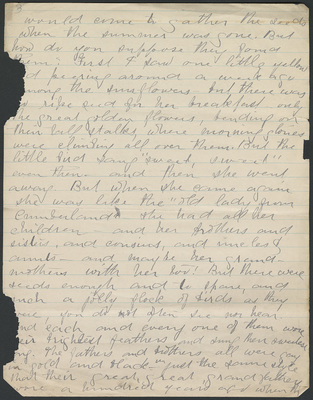 would come to gather the seeds
when the summer was gone. But
how do you suppose they found
them? First I saw one little yellow
bird peering around a week ago
among the sunflowers. But there was
no ripe seed for her breakfast only
the great golden flowers, bending on
their tall stalks, where morning glories
were climbing all over them. But the
little bird sang "sweet, sweet"
even then and then she went
away. But when she came again
she was like the "Old lady from
Cumberland" she had all her
children and her brothers and
sisters, and cousins, and uncles,
aunts and maybe her grand-
mothers with her too! But there were
seeds enough and to spare, and
such a jolly flock of birds as they
were, you do not often see nor hear.
And each and every one of them wore
their brightest feathers and sang their sweetest
song. The fathers and brothers, all were gay
in gold and black just the same style
that their great, great grandfathers
wore a hundred years ago when the